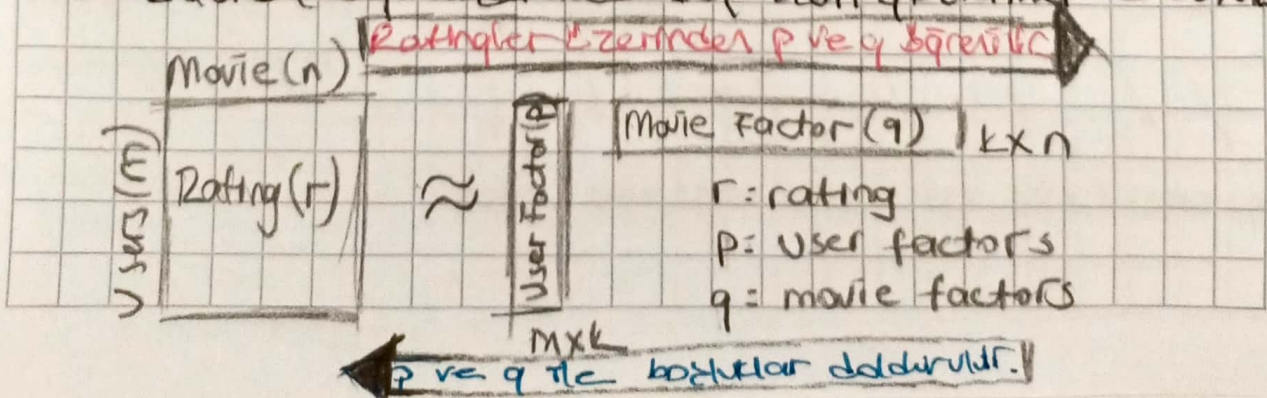 Ratingler üzerinden p ve q öğrenilir
Movie(n)
Users(m)
Rating(r)
≈
User Factor(p)
mxk
Movie Factor(q)
kxn
r: rating
p: user factors
q: movie factors
p ve q ile boşluklar doldurulur.